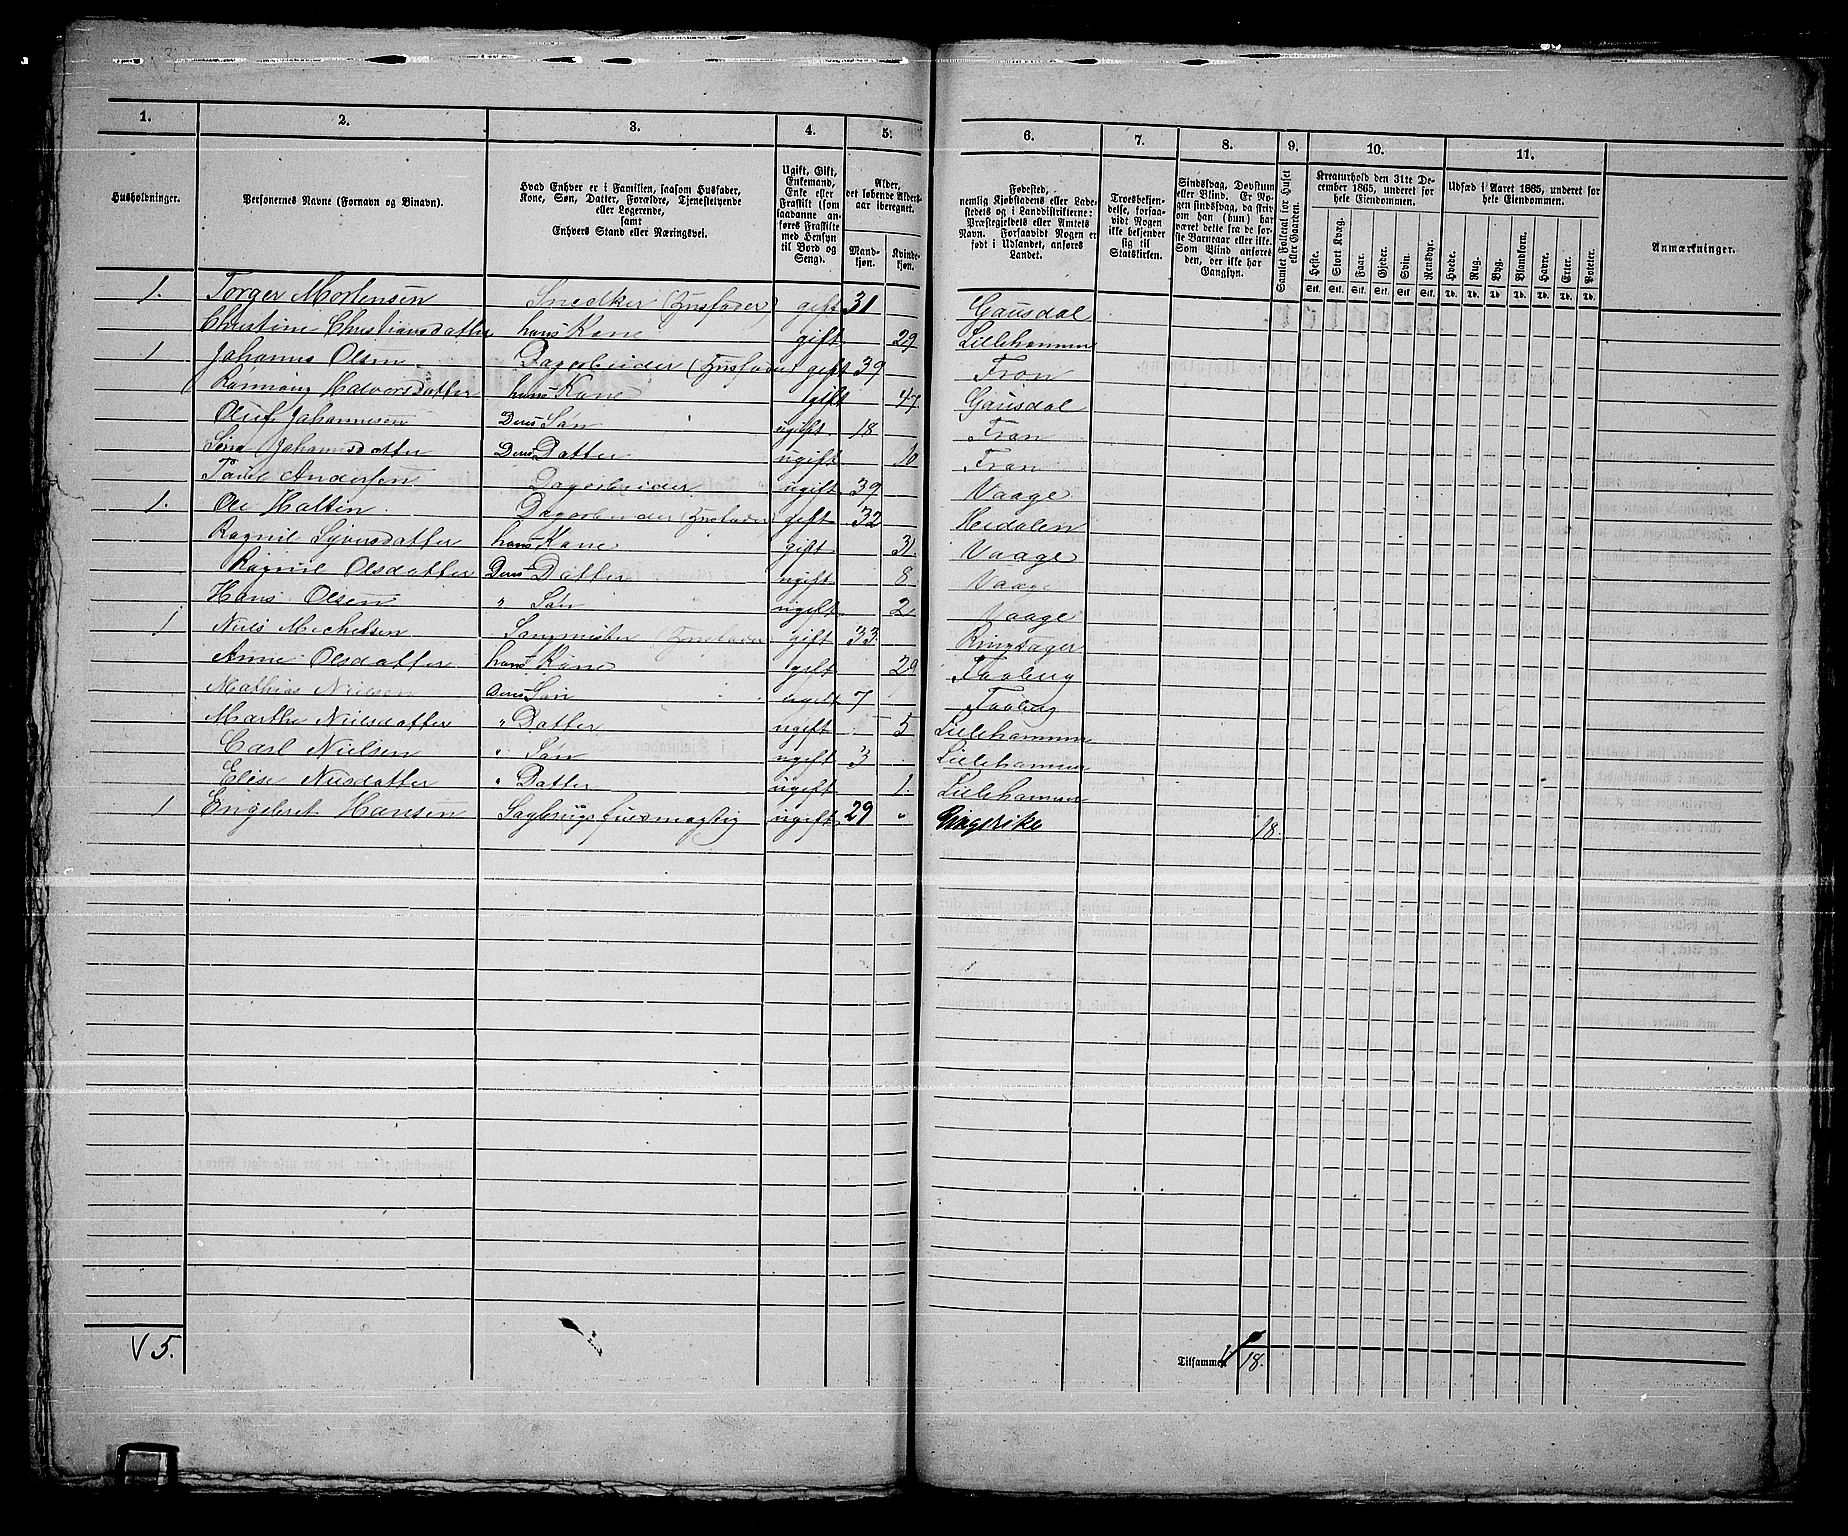 1. 2. 3. 4. 5. 6. 7. 8. 9. 10. 11.
Husholdninger.
Personernes Navne (Fornavn og Binavn).
Hvad Enhver er i Familien, saasom Husfader, Kone, Søn, Datter, Forældre, Tjenestetyende eller Logerende, samt Enhvers Stand eller Næringsvei.
Ugift, Gift, Enkemand, Enke eller Fraskilt (som saadanne anføres Fraskilte med Hensyn til Bord og Seng).
Alder, det løbende Aldersaar iberegnet.
Mandkjøn. Kvindekjøn.
Fødested, nemlig Kjøbstadens eller Ladestedets og i Landdistrikterne: Præstegjeldets eller Amtets Navn. Forsaavidt Nogen er født i Udlandet, anføres Landet.
Troesbekjendelse, forsaavidt Nogen ikke bekjender sig til Statskirken.
Sindssvag, Døvstum eller Blind. Er Nogen sindssvag, da skriv om han (hun) har været dette fra de første Barneaar eller ikke. Som Blind anføres den, der ikke har Gangsyn.
Samlet Folketal for Huset eller Gaarden.
Kreaturhold den 31te December 1865, underet for hele Eiendommen.
Heste. Stort Kvæg. Faar. Gjeder. Svin. Rensdyr.
Stk. Stk. Stk. Stk. Stk. Stk.
Udsæd i Aaret 1865, underet for hele Eiendommen.
Hvede. Rug. Byg. Blandkorn. Havre. Erter. Poteter.
Td. Td. Td. Td. Td. Td. Td.
Anmærkninger.
1. Torger Mortensen Snedker (Husfader) gift 31 Gausdal
Christine Christiansdatter hans Kone gift 29 Lillehammer
1 Johannes Olsen Dagarbeider (Husfader) gift 39 Fron
Rønnaug Halvorsdatter hans Kone gift 47 Gausdal
Oluf Johannesen Deres Søn ugift 18 Fron
Johannsdatter Deres Datter ugift 10 Fron
Paul Andersen Dagarbeider ugift 39 Vaage
1. Ole Hattin Dagarbeider (Husfader) gift 32 Hedalen
Ragnil Syversdatter hans Kone gift 31. Vaage
Ragnil Olsdatter Deres Datter ugift 8 Vaage
Hans Olsen " Søn ugift 2 Vaage
1 Niels Michelsen Sangmester (Husfader) gift 33. Ringsager
Anne Olsdatter hans Kone gift 29 Faaberg
Mathias Nielsen Deres Søn ugift 7 Faaberg
Marthe Nielsdatter " Datter ugift 5 Lillehammer
Carl Nielsen " Søn ugift 3 Lillehammer
Elise Nielsdatter " Datter ugift 1. Lillehammer
1 Engebret Hansen Sagbrugsfuldmægtig ugift 29 " Ringerike 18
V 5.
Tilsammen 18.